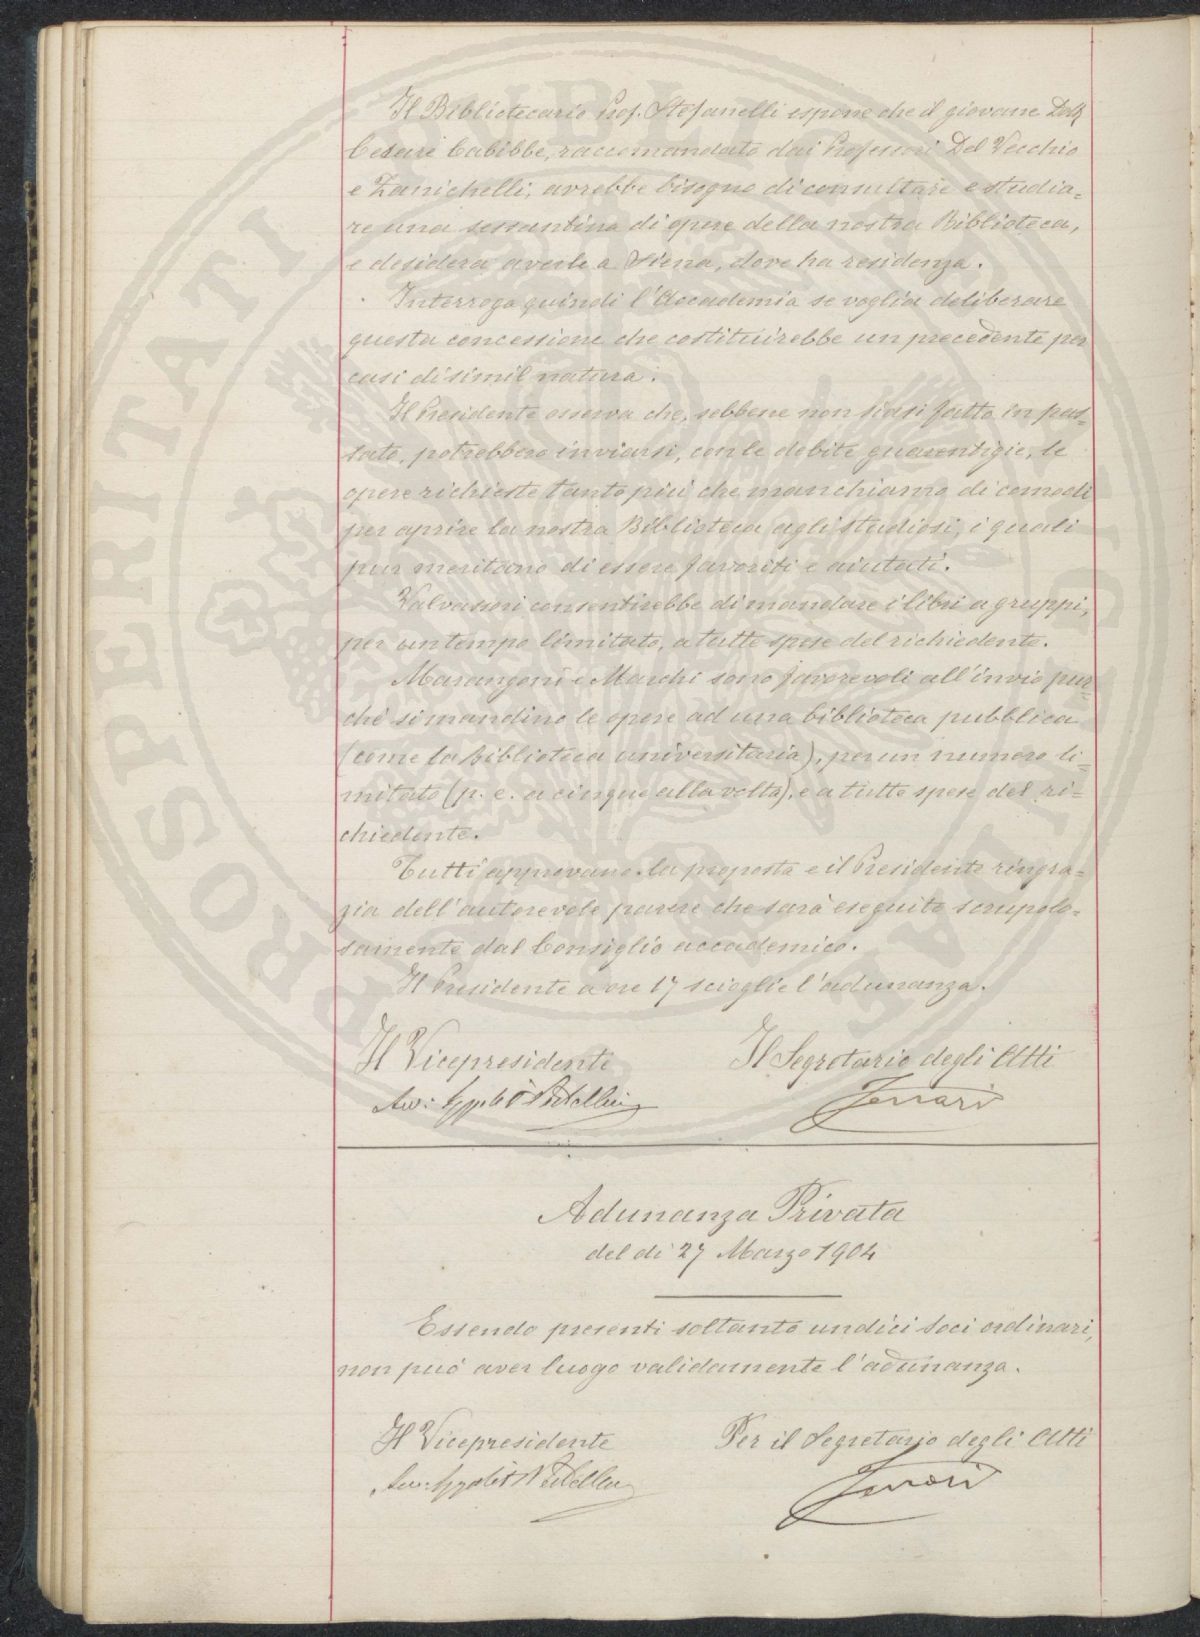 Il Bibliotecario Prof. Stefanelli espone che il giovane Dott.
Cesare Cabibbe, raccomandato dai Professori Del Vecchio
e Zanichelli, avrebbe bisogno di consultare e studia=
re una sessantina di opere della nostra Biblioteca,
e desidera averle a Siena, dove ha residenza.
Interroga quindi l'Accademia se voglia deliberare
questa concessione che costituirebbe un precedente per
casi di simil natura.
Il Presidente osserva che, sebbene non siasi fatto in pas=
sato, potrebbero inviarsi, con le debite guarentigie, le
opere richieste tanto più che manchiamo di comodi
per aprire la nostra Biblioteca agli studiosi, i quali
pur meritano di essere favoriti e aiutati.
Valvassori consentirebbe di mandare i libri a gruppi,
per un tempo limitato, a tutte spese del richiedente.
Marangoni e Marchi sono favorevoli all'invio pur=
chè si mandino le opere ad una biblioteca pubblica
(come la Biblioteca universitaria), per un numero li=
mitato (p. e. a cinque alla volta), e a tutte spese del ri=
chiedente.
Tutti approvano la proposta e il Presidente ringra=
zia dell'autorevole parere che sarà eseguito scrupolo=
samente dal Consiglio accademico.
Il Presidente a ore 17 scioglie l'adunanza.
Il Vicepresidente Il Segretario degli Atti
Avv: Ferrari
Adunanza Privata
del dì 27 Marzo 1904
Essendo presenti soltanto undici Soci ordinari,
non può aver luogo validamente l'adunanza.
Il Vicepresidente Per il Segretario degli Atti
Avv: Ferrari